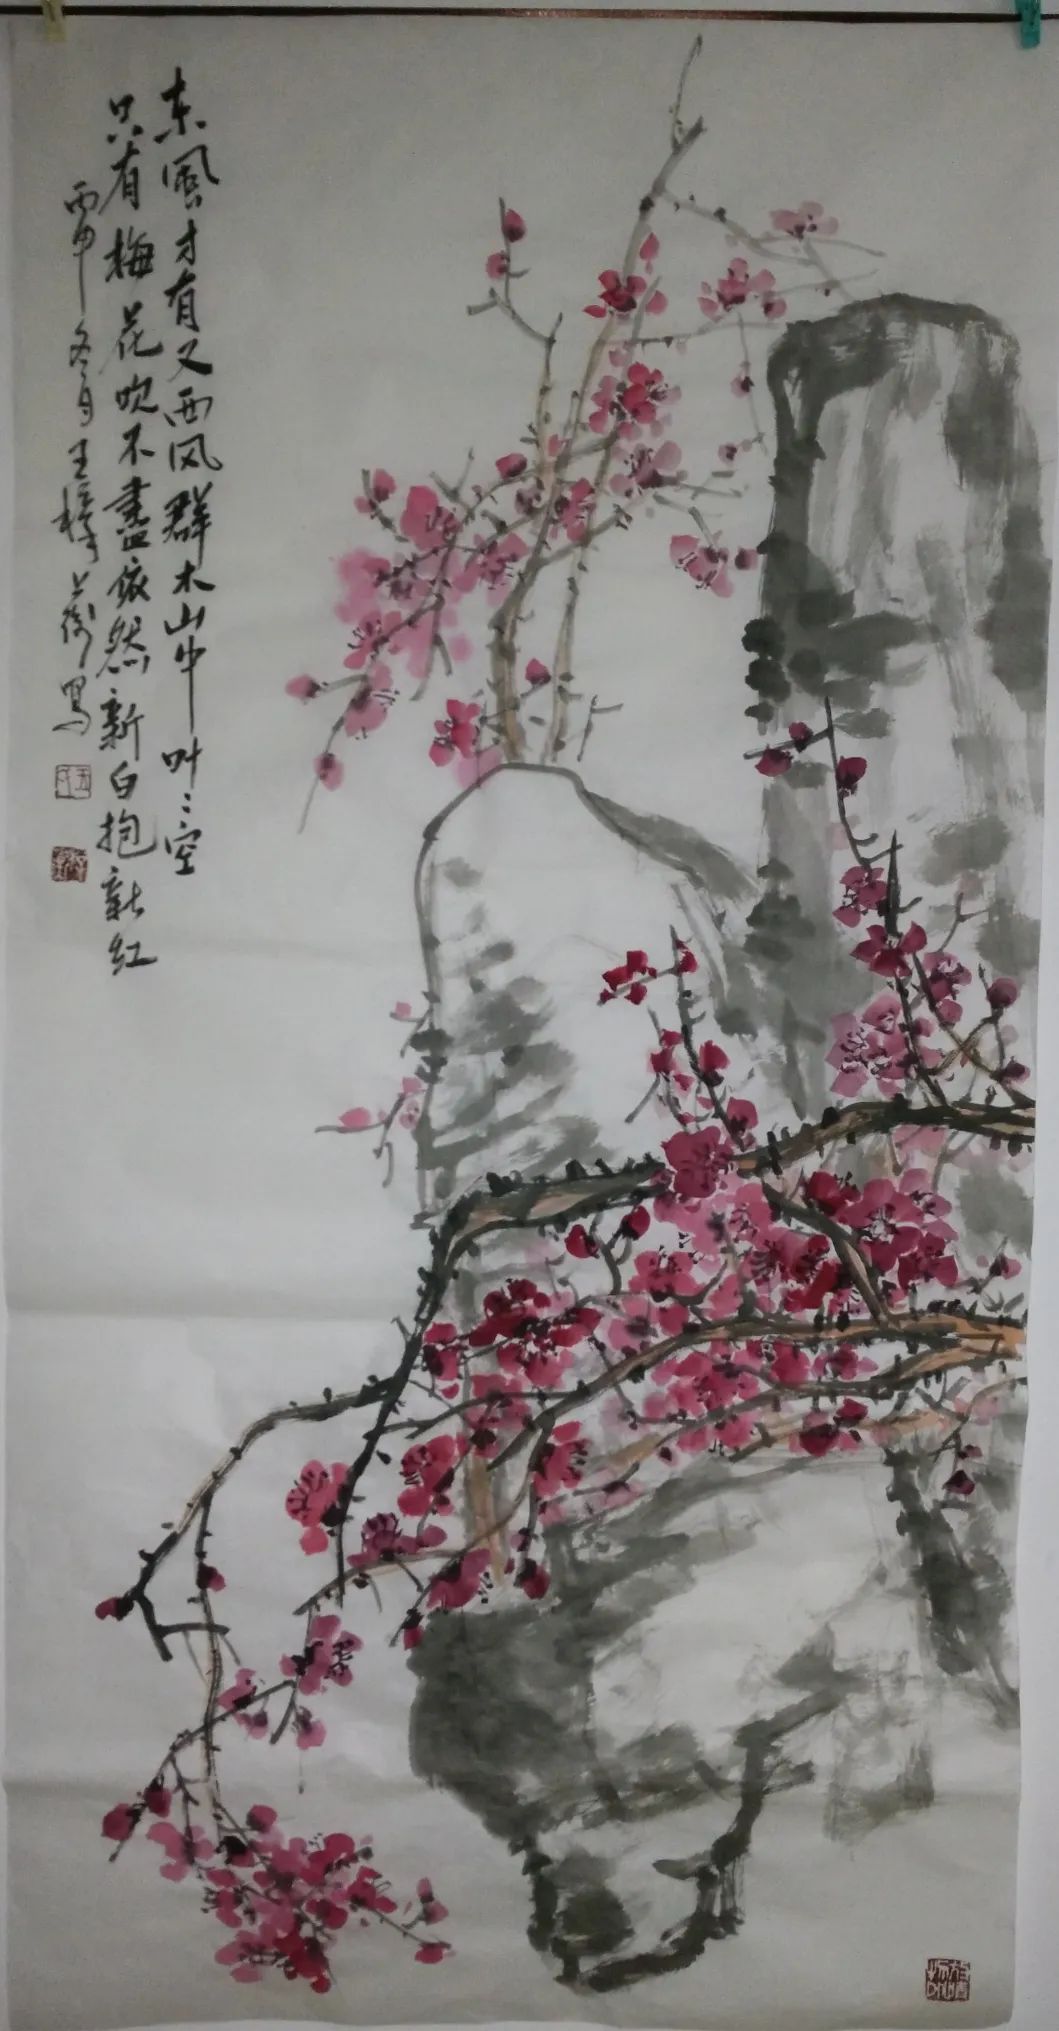 东風才有又西风群木山中叶〻空
只有梅花吹不盡依然新白抱新红
丙申冬月王梓蘅写